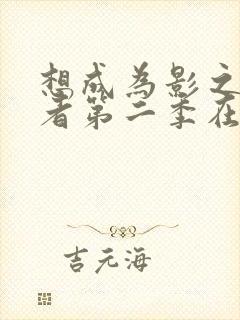 想成为影之
者第二季在
吉元海